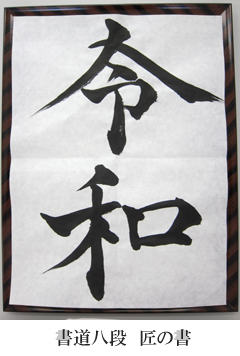 令
和
書道八段 匠の書